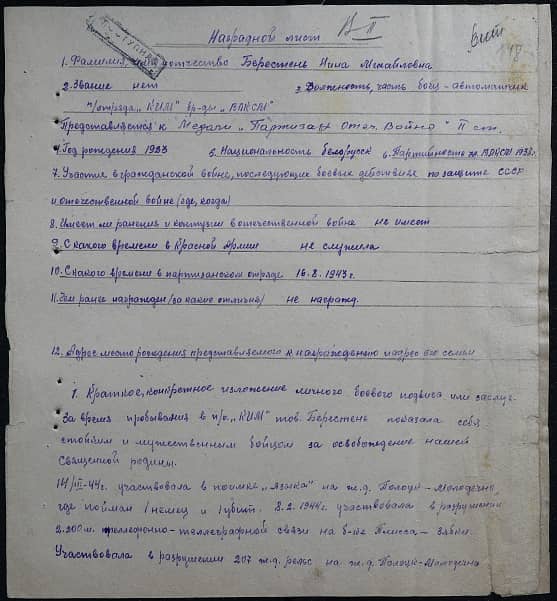 Наградной лист
В-II
вист
148
1. Фамилия, имя отчество Берестень Нина Михайловна
2. Звание нет 3. Должность, часть боец-автоматчик
п/отряда „КИМ" бр-ды „ВЛКСМ"
Представляется к Медали „Партизан Отеч. Войны" II ст.
4. Год рождения 1923 5. Национальность белорусск 6. Партийность чл. ВЛКСМ 1938г.
7. Участие в гражданской войне, последующих боевых действиях по защите СССР
и отечественной войне (где, когда)
8. Имеет ли ранения и контузии в отечественной войне не имеет
9. С какого времени в Красной Армии не служила
10. С какого времени в партизанском отряде 16.8.1943г.
11. Чем ранее награжден /за какие отличия/ не награжд.
12. Адрес место рождения представляемого к награждению и адрес его семьи
1. Краткое, конкретное изложение личного боевого подвига или заслуг.
За время пребывания в п/о „КИМ" тов. Берестень показала себя
стойким и мужественным бойцом за освобождение нашей
священной родины.
14/III-44г. участвовала в поимке „языка" на ж.д. Полоцк-Молодечно,
где пойман 1 немец и 1 убит. 8.2.1944г. участвовала в разрушении
2.200 м. телефонно-телеграфной связи на б-ке Плисса - Зябки.
Участвовала в разрушении 207 ж.д. рельс на ж.д. Полоцк-Молодечно